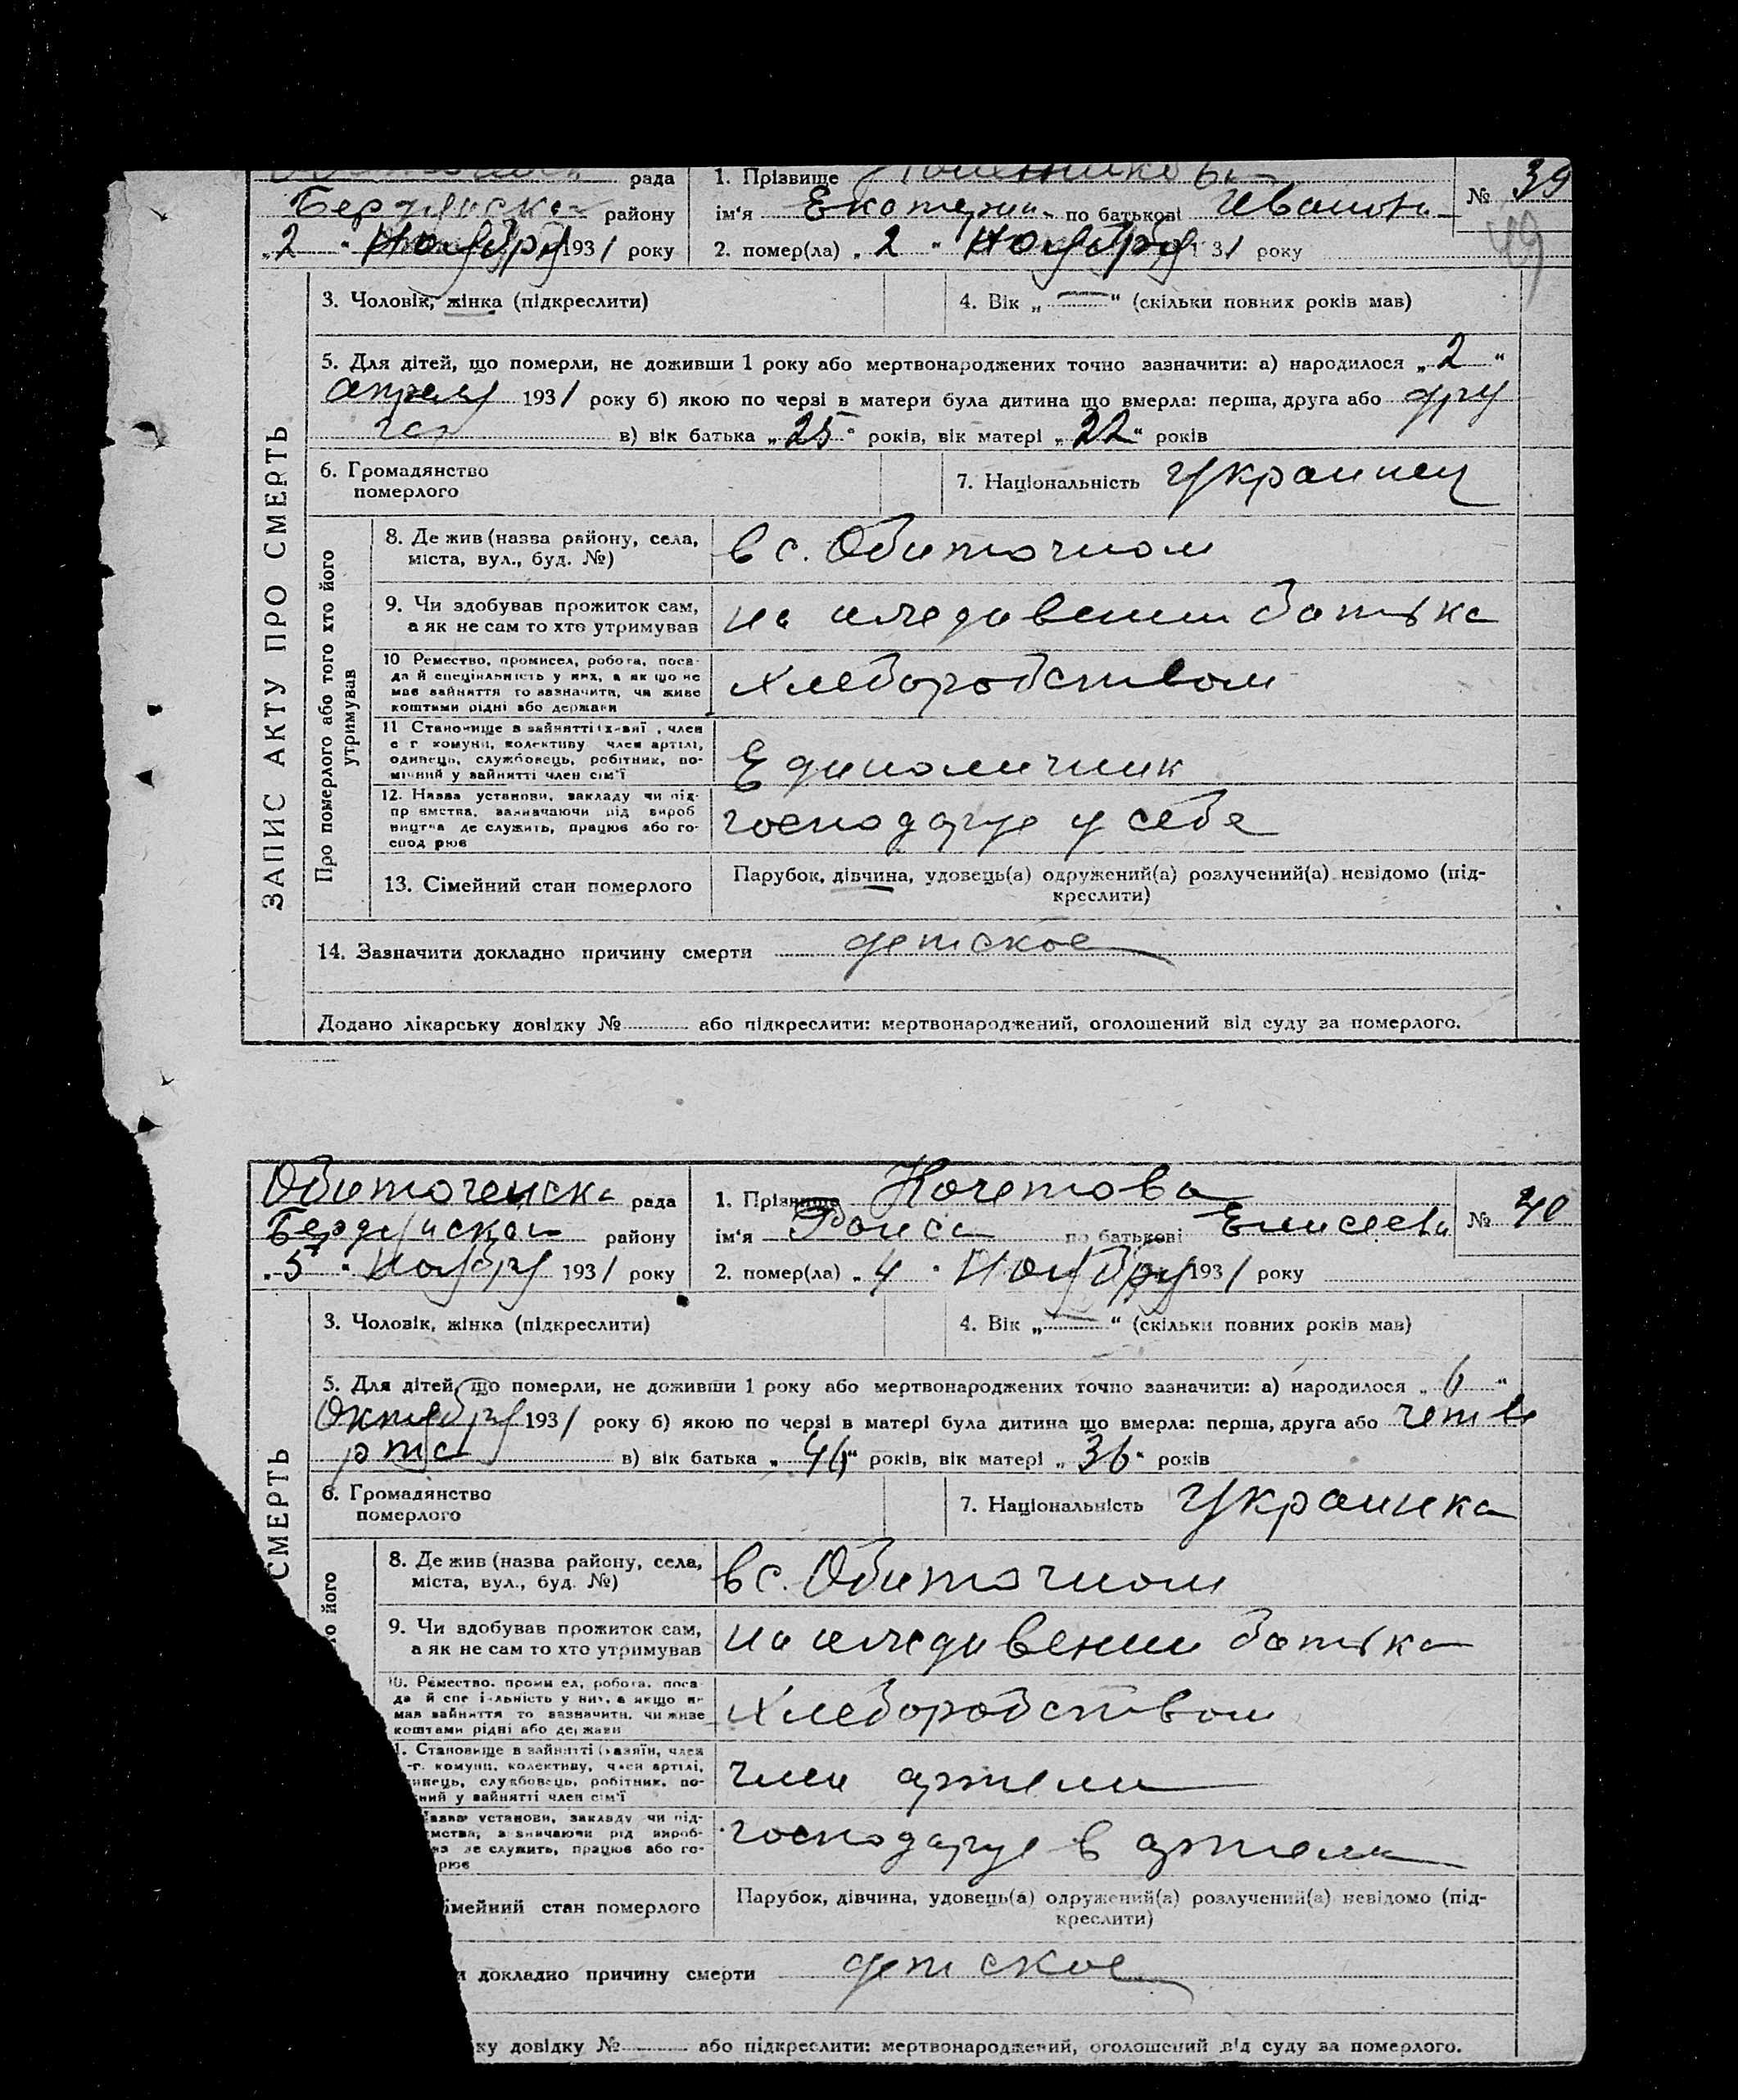 рада 1. Прізвище № 39
Бердянска району ім'я Екатерина по батькові Ивановна
„2" Ноября 1931 року 2. помер(ла) „2" Ноября 1931 року
49
3. Чоловік, жінка (підкреслити) 4. Вік „—" (скільки повних років мав)
5. Для дітей, що померли, не доживши 1 року або мертвонароджених точно зазначити: а) народилося „2"
апреля 1931 року б) якою по черзі в матери була дитина що вмерла: перша, друга або дру
гая в) вік батька „25" років, вік матері „22" років
6. Громадянство
померлого
7. Національність Украинец
ЗАПИС АКТУ ПРО СМЕРТЬ
Про померлого або того хто його
утримував
8. Де жив (назва району, села,
міста, вул., буд. №)
в с. Обиточном
9. Чи здобував прожиток сам,
а як не сам то хто утримував
на иждивении батька
10 Ремество, промисел, робота, поса-
да й спеціяльність у них, а як що не
мав зайняття то зазначити, чи живе
коштами рідні або держави
Хлеборобством
11 Становище в зайнятті (х-зяї , член
с г комуни, колективу член артілі,
одинець, службовець, робітник, по-
мічний у зайнятті член сім'ї
Единоличник
12. Назва установи, закладу чи під-
пр ємства, зазначаючи рід вироб
ництва де служить, працює або го-
спод рює
господарує у себе
13. Сімейний стан померлого
Парубок, дівчина, удовець(а) одружений(а) розлучений(а) невідомо (під-
креслити)
14. Зазначити докладно причину смерти детское
Додано лікарську довідку № або підкреслити: мертвонароджений, оголошений від суду за померлого.
Обиточенска рада 1. Прізвище Кочетова № 40
Бердянскаи району ім'я Раиса по батькові Елисеевн
„5" Ноября 1931 року 2. помер(ла) „4" Ноября 1931 року
3. Чоловік, жінка (підкреслити) 4. Вік „—" (скільки повних років мав)
5. Для дітей, що померли, не доживши 1 року або мертвонароджених точно зазначити: а) народилося „6"
Октября 1931 року б) якою по черзі в матері була дитина що вмерла: перша, друга або четве
ртая в) вік батька років, вік матері „36" років
6. Громадянство
померлого
7. Національність Украинка
СМЕРТЬ
о його
8. Де жив (назва району, села,
міста, вул., буд. №)
в с. Обиточном
9. Чи здобував прожиток сам,
а як не сам то хто утримував
на иждивении батька
10. Ремество, проми ел, робота, поса-
да й спе і-льність у них, а якщо не
мав зайняття то зазначити, чи живе
коштами рідні або держави
Хлеборобством
1. Становище в зайнятті (хазяїн, член
-г. комуни, колективу, член артілі,
инець, службовець, робітник, по-
ний у зайнятті член сім'ї
член артели
азва установи, закладу чи під-
мства, зазначаючи рід вироб-
ва де служить, працює або го-
рює
господарує в артели
імейний стан померлого
Парубок, дівчина, удовець(а) одружений(а) розлучений(а) невідомо (під-
креслити)
и докладно причину смерти детское
ку довідку № або підкреслити: мертвонароджений, оголошений від суду за померлого.